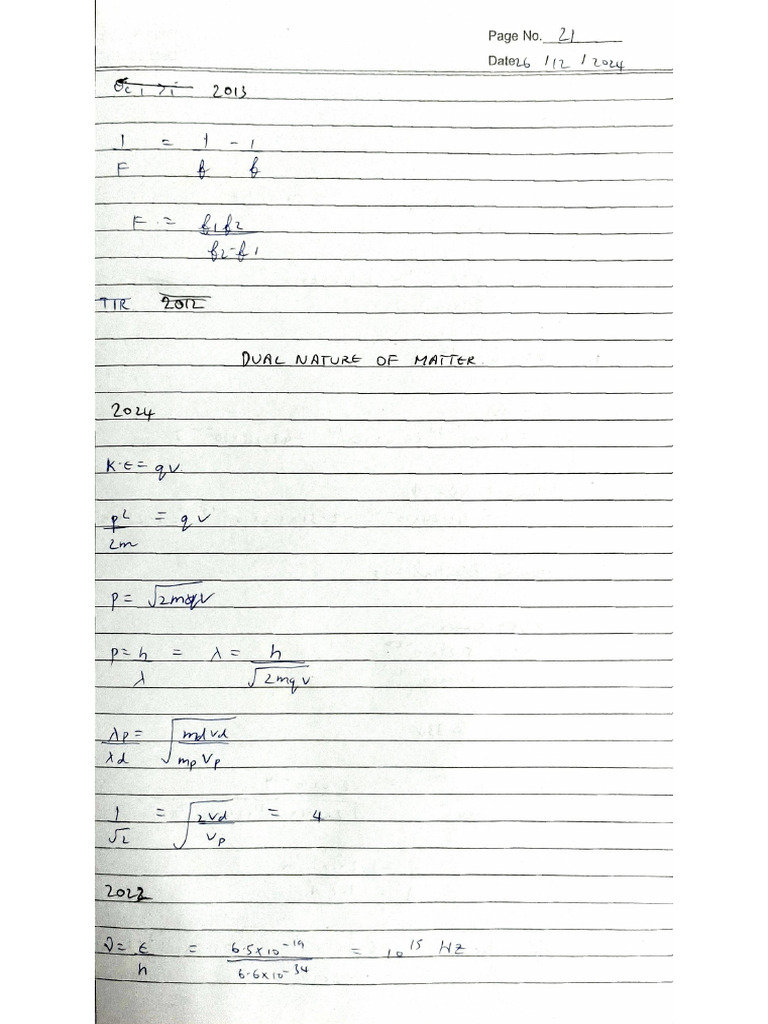 Page No. 21
Date 26 / 12 / 2024
2013
1/F = 1/f - 1/f
F = f1f2/f2-f1
TIR 2012
DUAL NATURE OF MATTER.
2024
K.E = qV
p²/2m = qV
p = √2mqV
p = h/λ = λ = h/√2mqV
λp/λd = √mdVd/mpVp
1/√2 = √2Vd/Vp = 4
2023
ν = E/h = 6.5×10⁻¹⁹/6.6×10⁻³⁴ = 10¹⁵ Hz